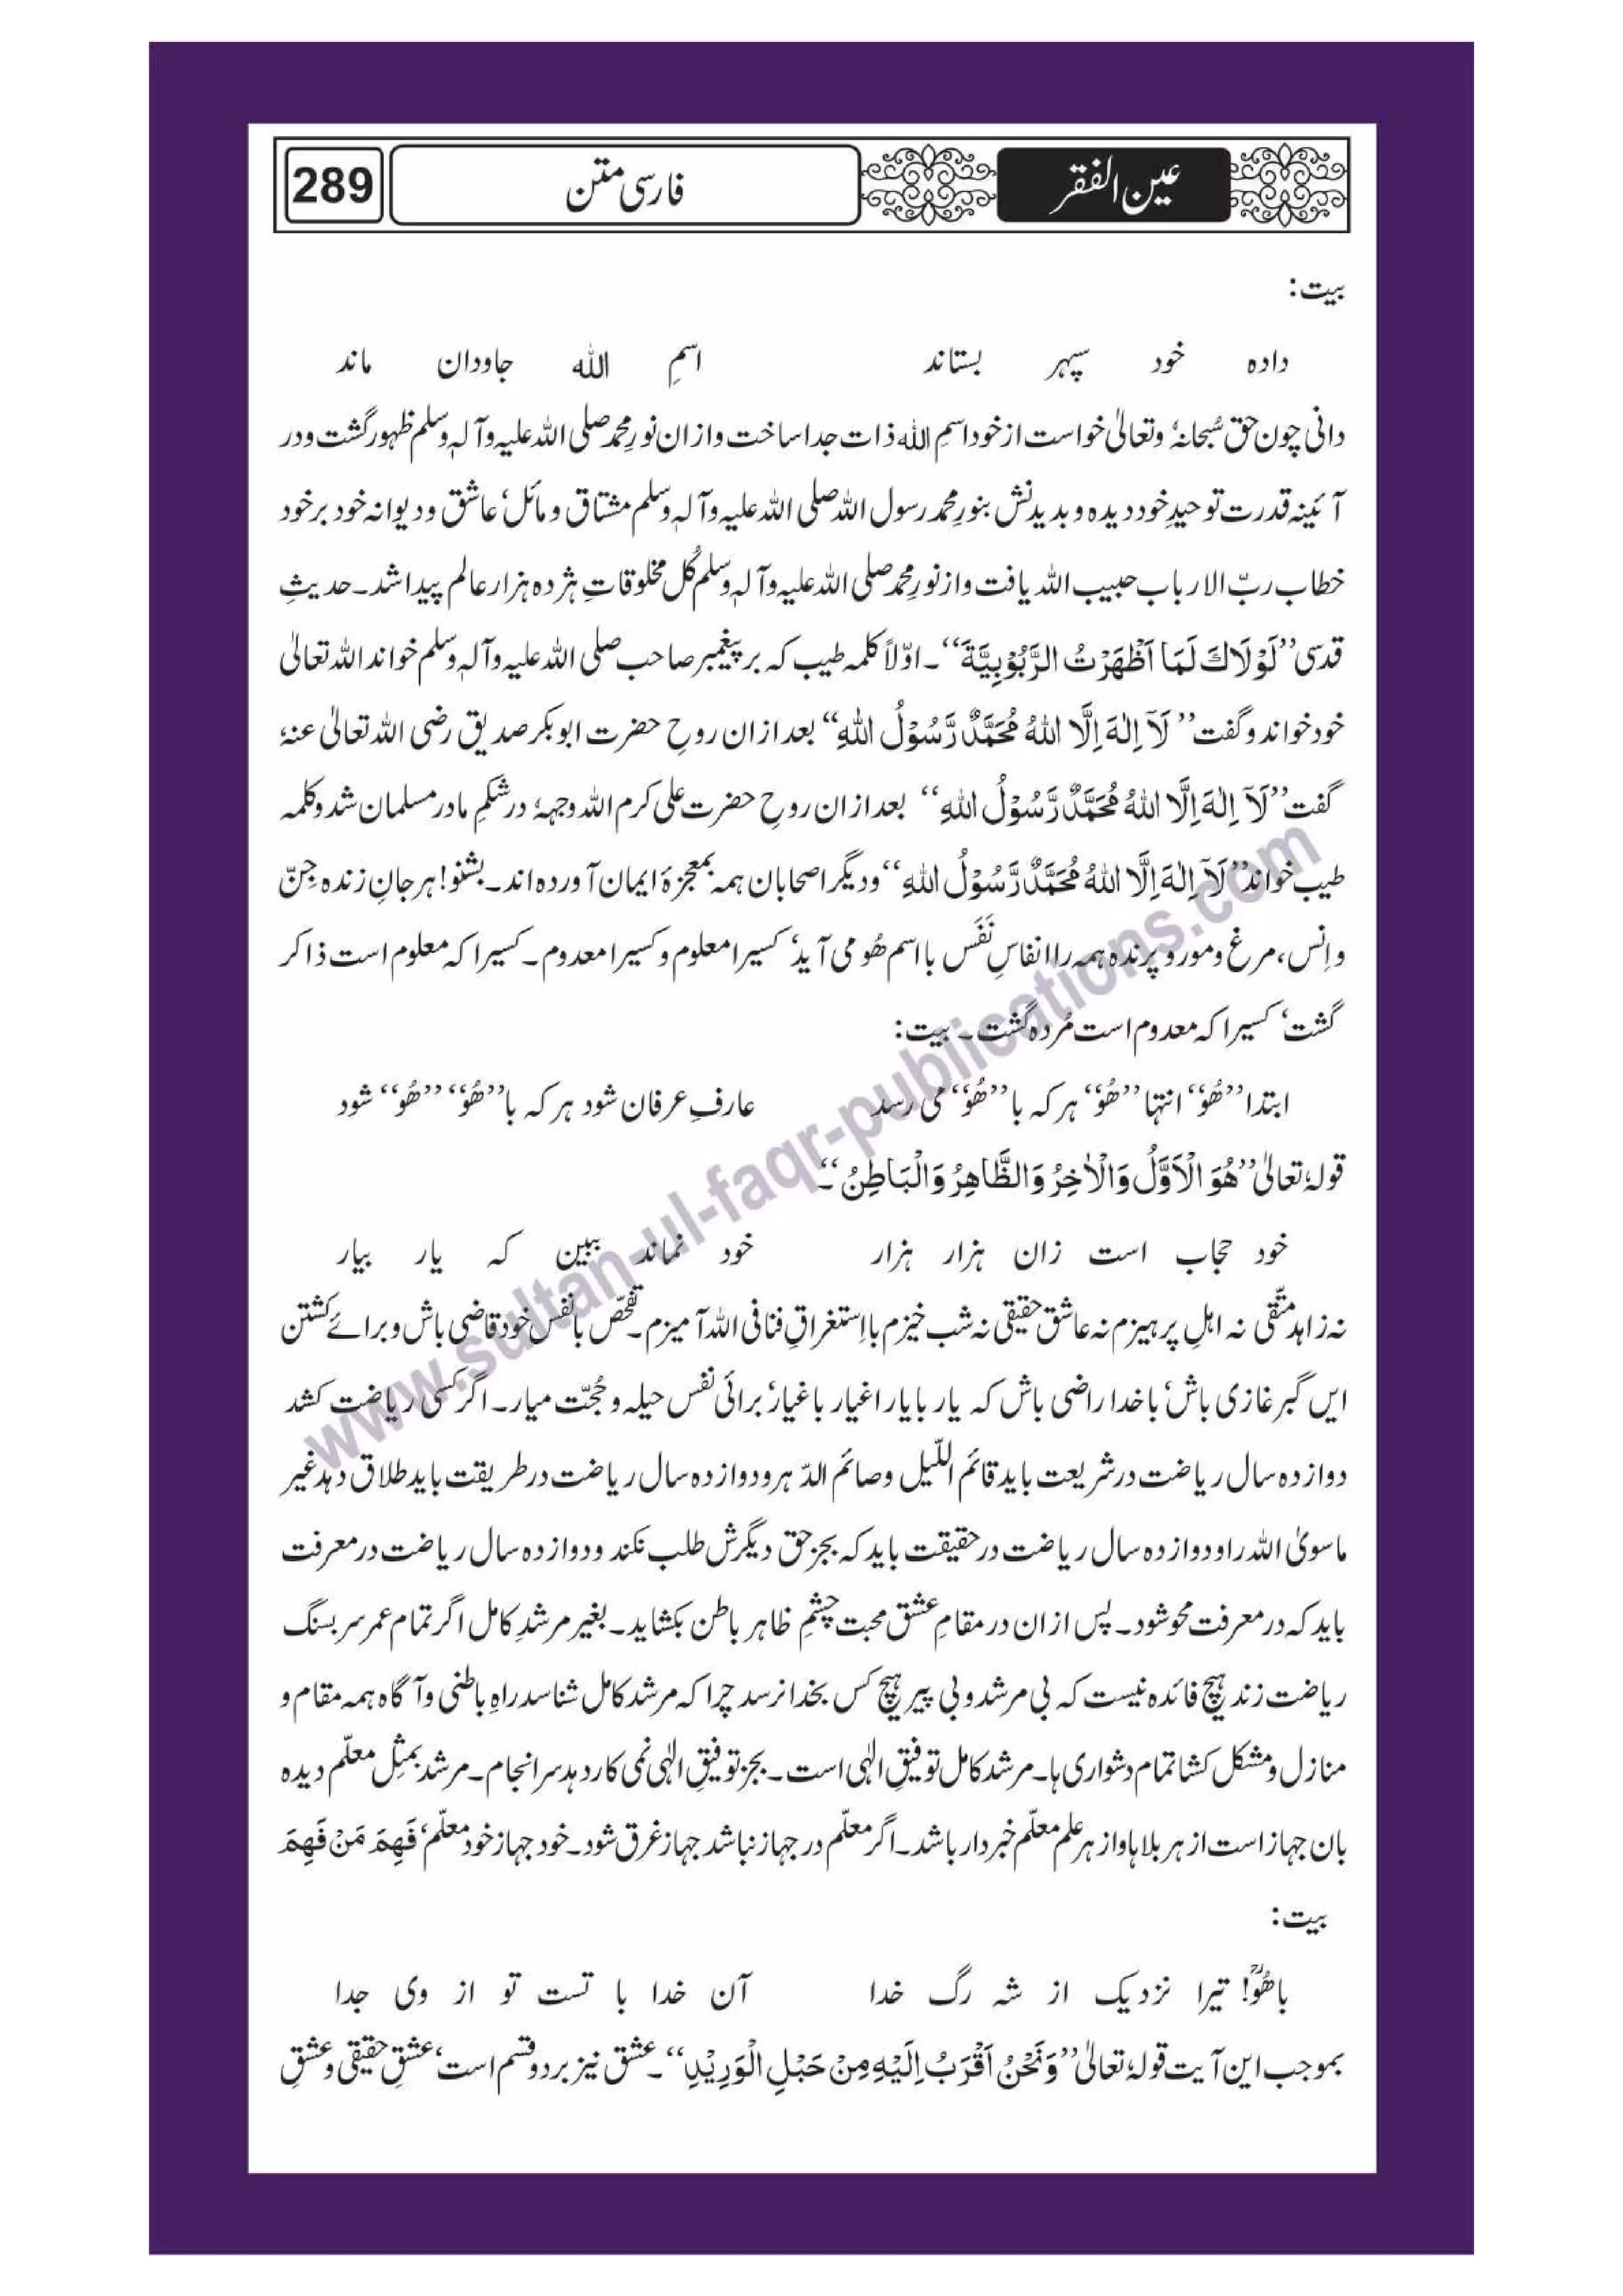 عین الفقر
فارسی متن
289
بیت:
دادہ خود سپہر بستاند اسمِ اللہ جاودان ماند
دانی چون حق سُبحانہٗ وتعالیٰ خواست از خود اسمِ اللہ ذات جدا ساخت وازان نورِ محمد صلی اللہ علیہ وآلہٖ وسلم ظہور گشت ودر
آئینہ قدرت توحیدِ خود دیدہ وبدیدنش بنورِ محمد رسول اللہ صلی اللہ علیہ وآلہٖ وسلم مشتاق ومائل‘ عاشق ودیوانہ خود برخود
خطاب ربّ الارباب حبیب اللہ یافت واز نورِ محمد صلی اللہ علیہ وآلہٖ وسلم کُل مخلوقاتِ ہژدہ ہزار عالم پیدا شد۔ حدیثِ
قدسی ’’لَوْلَاكَ لَمَا اَظْهَرْتُ الرَّبُوْبِيَّةَ‘‘۔ اوّلاً کلمہ طیب کہ بر پیغمبر صاحب صلی اللہ علیہ وآلہٖ وسلم خواند اللہ تعالیٰ
خود خواند وگفت ’’لَآ اِلٰهَ اِلَّا اللهُ مُحَمَّدٌ رَّسُوْلُ اللهِ‘‘ بعد ازان روحِ حضرت ابوبکر صدیق رضی اللہ تعالیٰ عنہٗ
گفت ’’لَآ اِلٰهَ اِلَّا اللهُ مُحَمَّدٌ رَّسُوْلُ اللهِ‘‘ بعد ازان روحِ حضرت علی کرم اللہ وجہہٗ در شکمِ مادر مسلمان شد وکلمہ
طیب خواند ’’لَآ اِلٰهَ اِلَّا اللهُ مُحَمَّدٌ رَّسُوْلُ اللهِ‘‘ ودیگر اصحابان ہمہ بمعجزۂ ایمان آوردہ اند۔ بشنو! ہر جانِ زندہ جِنّ
واِنس، مرغ ومور وپرندہ ہمہ را انفاسِ نَفَس با اسم ھُو می آید‘ کسیرا معلوم وکسیرا معدوم۔ کسیرا کہ معلوم است ذاکر
گشت‘ کسیرا کہ معدوم است مُردہ گشت۔ بیت:
ابتدا ’’ھُو‘‘ انتہا ’’ھُو‘‘ ہر کہ با ’’ھُو‘‘ می رسد عارفِ عرفان شود ہر کہ با ’’ھُو‘‘ ’’ھُو‘‘ شود
قولہٗ تعالیٰ ’’هُوَ الْاَوَّلُ وَالْاٰخِرُ وَالظَّاهِرُ وَالْبَاطِنُ‘‘۔
خود حجاب است زان ہزار ہزار خود نماند ببین کہ یار بیار
نہ زاہد متّقی نہ اہلِ پرہیزم نہ عاشق حقیقی نہ شب خیزم با اِستغراقِ فنا فی اللہ آمیزم۔ تفحّص با نفس خود قاضی باش وبرائے کشتن
ایں گبر غازی باش‘ باخدا راضی باش کہ یار با یار اغیار با غیار‘ برائی نفس حیلہ و حُجّت میار۔ اگر کسی ریاضت کشد
دوازدہ سال ریاضت در شریعت باید قائم اللّیل وصائم الدّہر ودوازدہ سال ریاضت در طریقت باید طلاق دہد غیر
ماسویٰ اللہ را ودوازدہ سال ریاضت در حقیقت باید کہ بجز حق دیگرش طلب نکند ودوازدہ سال ریاضت در معرفت
باید کہ در معرفت محو شود۔ پس ازان در مقامِ عشق محبت چشمِ ظاہر باطن بکشاید۔ بغیر مرشدِ کامل اگر تمام عمر سر بسنگ
ریاضت زند ہیچ فائدہ نیست کہ بی مرشد وبی پیر ہیچ کس بخدا نرسد چرا کہ مرشد کامل شناسد راہِ باطنی وآگاہ ہمہ مقام و
منازل ومشکل کشا تمام دشواری ہا۔ مرشد کامل توفیقِ الٰہی است۔ بجز توفیقِ الٰہی نمی کار دہد سرانجام۔ مرشد بمثِل معلّم دیدہ
بان جہاز است از ہر بلا ہا واز ہر علم معلّم خبردار باشد۔ اگر معلّم در جہاز نباشد جہاز غرق شود۔ خود جہاز خود معلّم‘ فَهِمَ مَنْ فَهِمَ
بیت:
باھُوؒ! تیرا نزدیک از شہ رگ خدا آن خدا با تست تو از وی جدا
بموجب این آیت قولہٗ تعالیٰ ’’وَنَحْنُ اَقْرَبُ اِلَيْهِ مِنْ حَبْلِ الْوَرِيْدِ‘‘۔ عشق نیز بر دو قسم است‘ عشقِ حقیقی و عشقِ
www.sultan-ul-faqr-publications.com